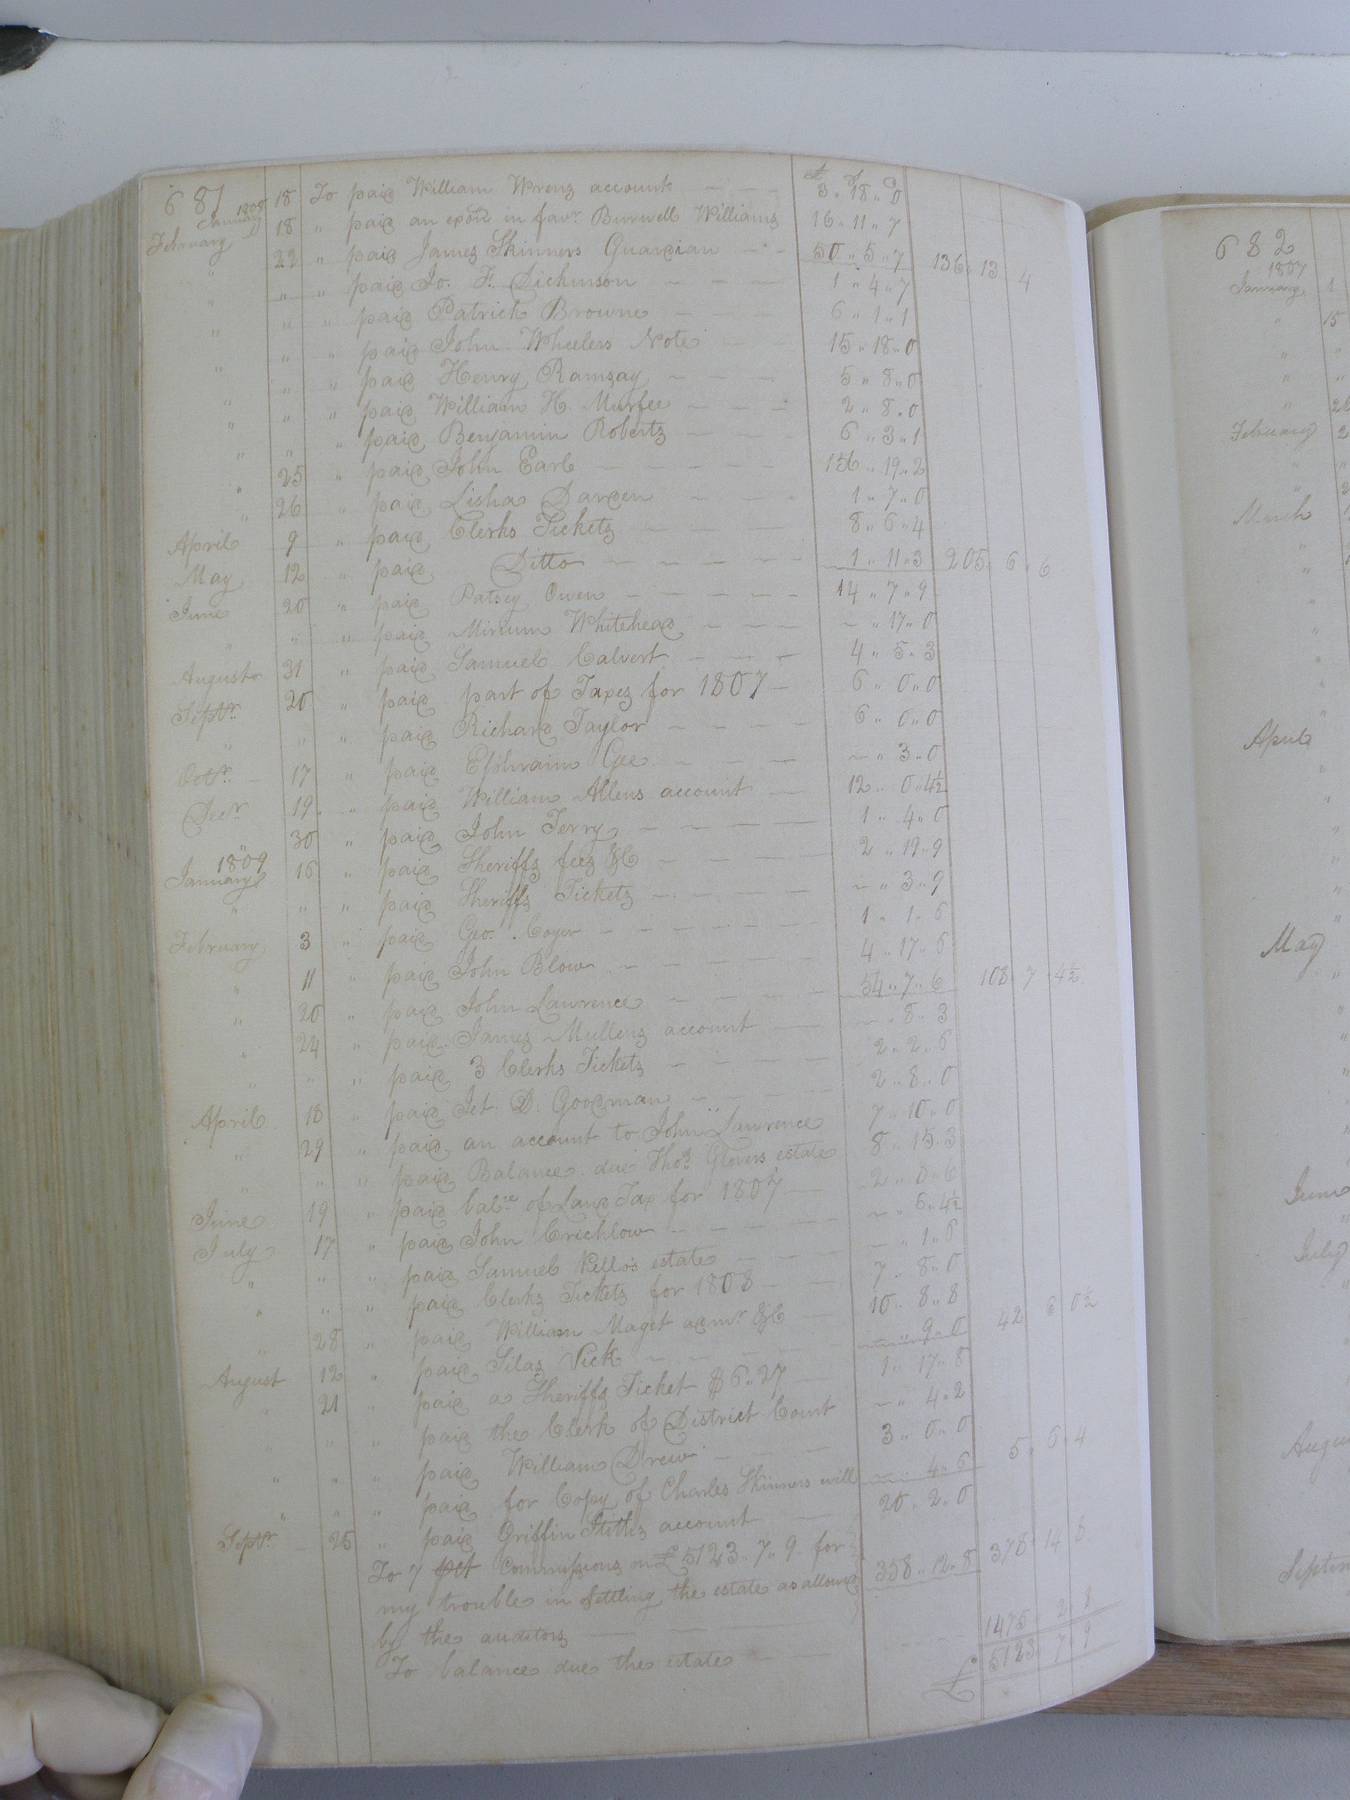 681
£ S D
1808 January 18 To paid William Wrens account 3 " 18 " 0
February 18 " paid an exōn in favr. Burwell Williams 16 " 11 " 7
" 22 " paid James Skinners Guardian 50 " 5 " 7 136 " 13 " 4
" " " paid Jo. F. Dickinson 1 " 4 " 7
" " " paid Patrick Browne 6 " 1 " 1
" " " paid John Wheelers Note 15 " 18 " 0
" " " paid Henry Ramsay 5 " 8 " 0
" " " paid William H. Murfee 2 " 8 " 0
" " " paid Benjamin Roberts 6 " 3 " 1
" 25 " paid John Earl 156 " 19 " 2
" 26 " paid Lisha Darden 1 " 7 " 0
April 9 " paid Clerks Tickets 8 " 6 " 4
May 12 " paid Ditto 1 " 11 " 3 205 " 6 " 6
June 20 " paid Patsey Owen 14 " 7 " 9
" " " paid Mirium Whitehead " 17 " 0
August 31 " paid Samuel Calvert 4 " 5 " 3
Septr. 20 " paid part of Taxes for 1807 6 " 0 " 0
" " " paid Richard Taylor 6 " 0 " 0
Octr. 17 " paid Ephraim Gee " 3 " 0
Decr. 19 " paid William Allens account 12 " 0 " 4½
" 30 " paid John Terry 1 " 4 " 0
1809 January 16 " paid Sheriffs fees &C 2 " 19 " 9
" " " paid Sheriffs Tickets " 3 " 9
February 3 " paid Geo. Coger 1 " 1 " 6
" 11 " paid John Blow 4 " 17 " 6
" 20 " paid John Lawrence 54 " 7 " 6 108 " 7 " 4½
" 24 " paid James Mullens account " 8 " 3
" " " paid 3 Clerks Tickets 2 " 2 " 6
April 18 " paid Jet. D. Goodman 2 " 8 " 0
" 29 " paid an account to John Lawrence 7 " 10 " 0
" " " paid Balance due Thos. Glovers estate 8 " 15 " 3
June 19 " paid balce. of Land Tax for 1807 2 " 0 " 6
July 17 " paid John Crichlow " 6 " 4½
" " " paid Samuel Kellos estate " 1 " 6
" " " paid Clerks Tickets for 1808 7 " 8 " 0
" 28 " paid William Maget admr. &C 10 " 8 " 8
August 12 " paid Silas Vick " 9 " 0 42 " 6 " 0½
" 21 " paid a Sheriffs Ticket $6.27 1 " 17 " 8
" " " paid the Clerk of District Court " 4 " 2
" " " paid William Drew 3 " 0 " 0
" " " paid for Copy of Charles Skinners will " 4 " 6 5 " 6 " 4
Septr. 25 " paid Griffin Stiths account 20 " 2 " 0
To 7 pct Commissions on £5123 " 7 " 9 for
my trouble in Settling the estate as allowed 358 " 12 " 8 378 " 14 " 8
by the auditors
To balance due the estate 1475 " 2 " 8
£ 5123 " 7 " 9
682
1807
January 1
" 15
February
March
April
May
June
July